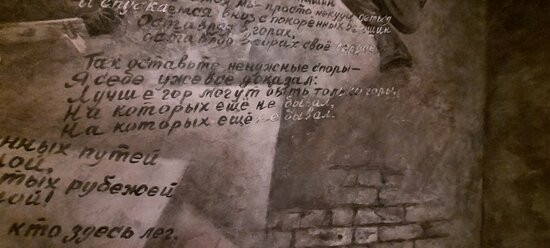 И спускаемся вниз с покорённых вершин
Оставляя в горах,
Так оставьте ненужные споры—
Я себе уже всё доказал:
Лучше гор могут быть только горы,
На которых ещё не бывал,
На которых ещё не бывал.
нных путей
ой,
тых рубежей
ой!
кто здесь лег.